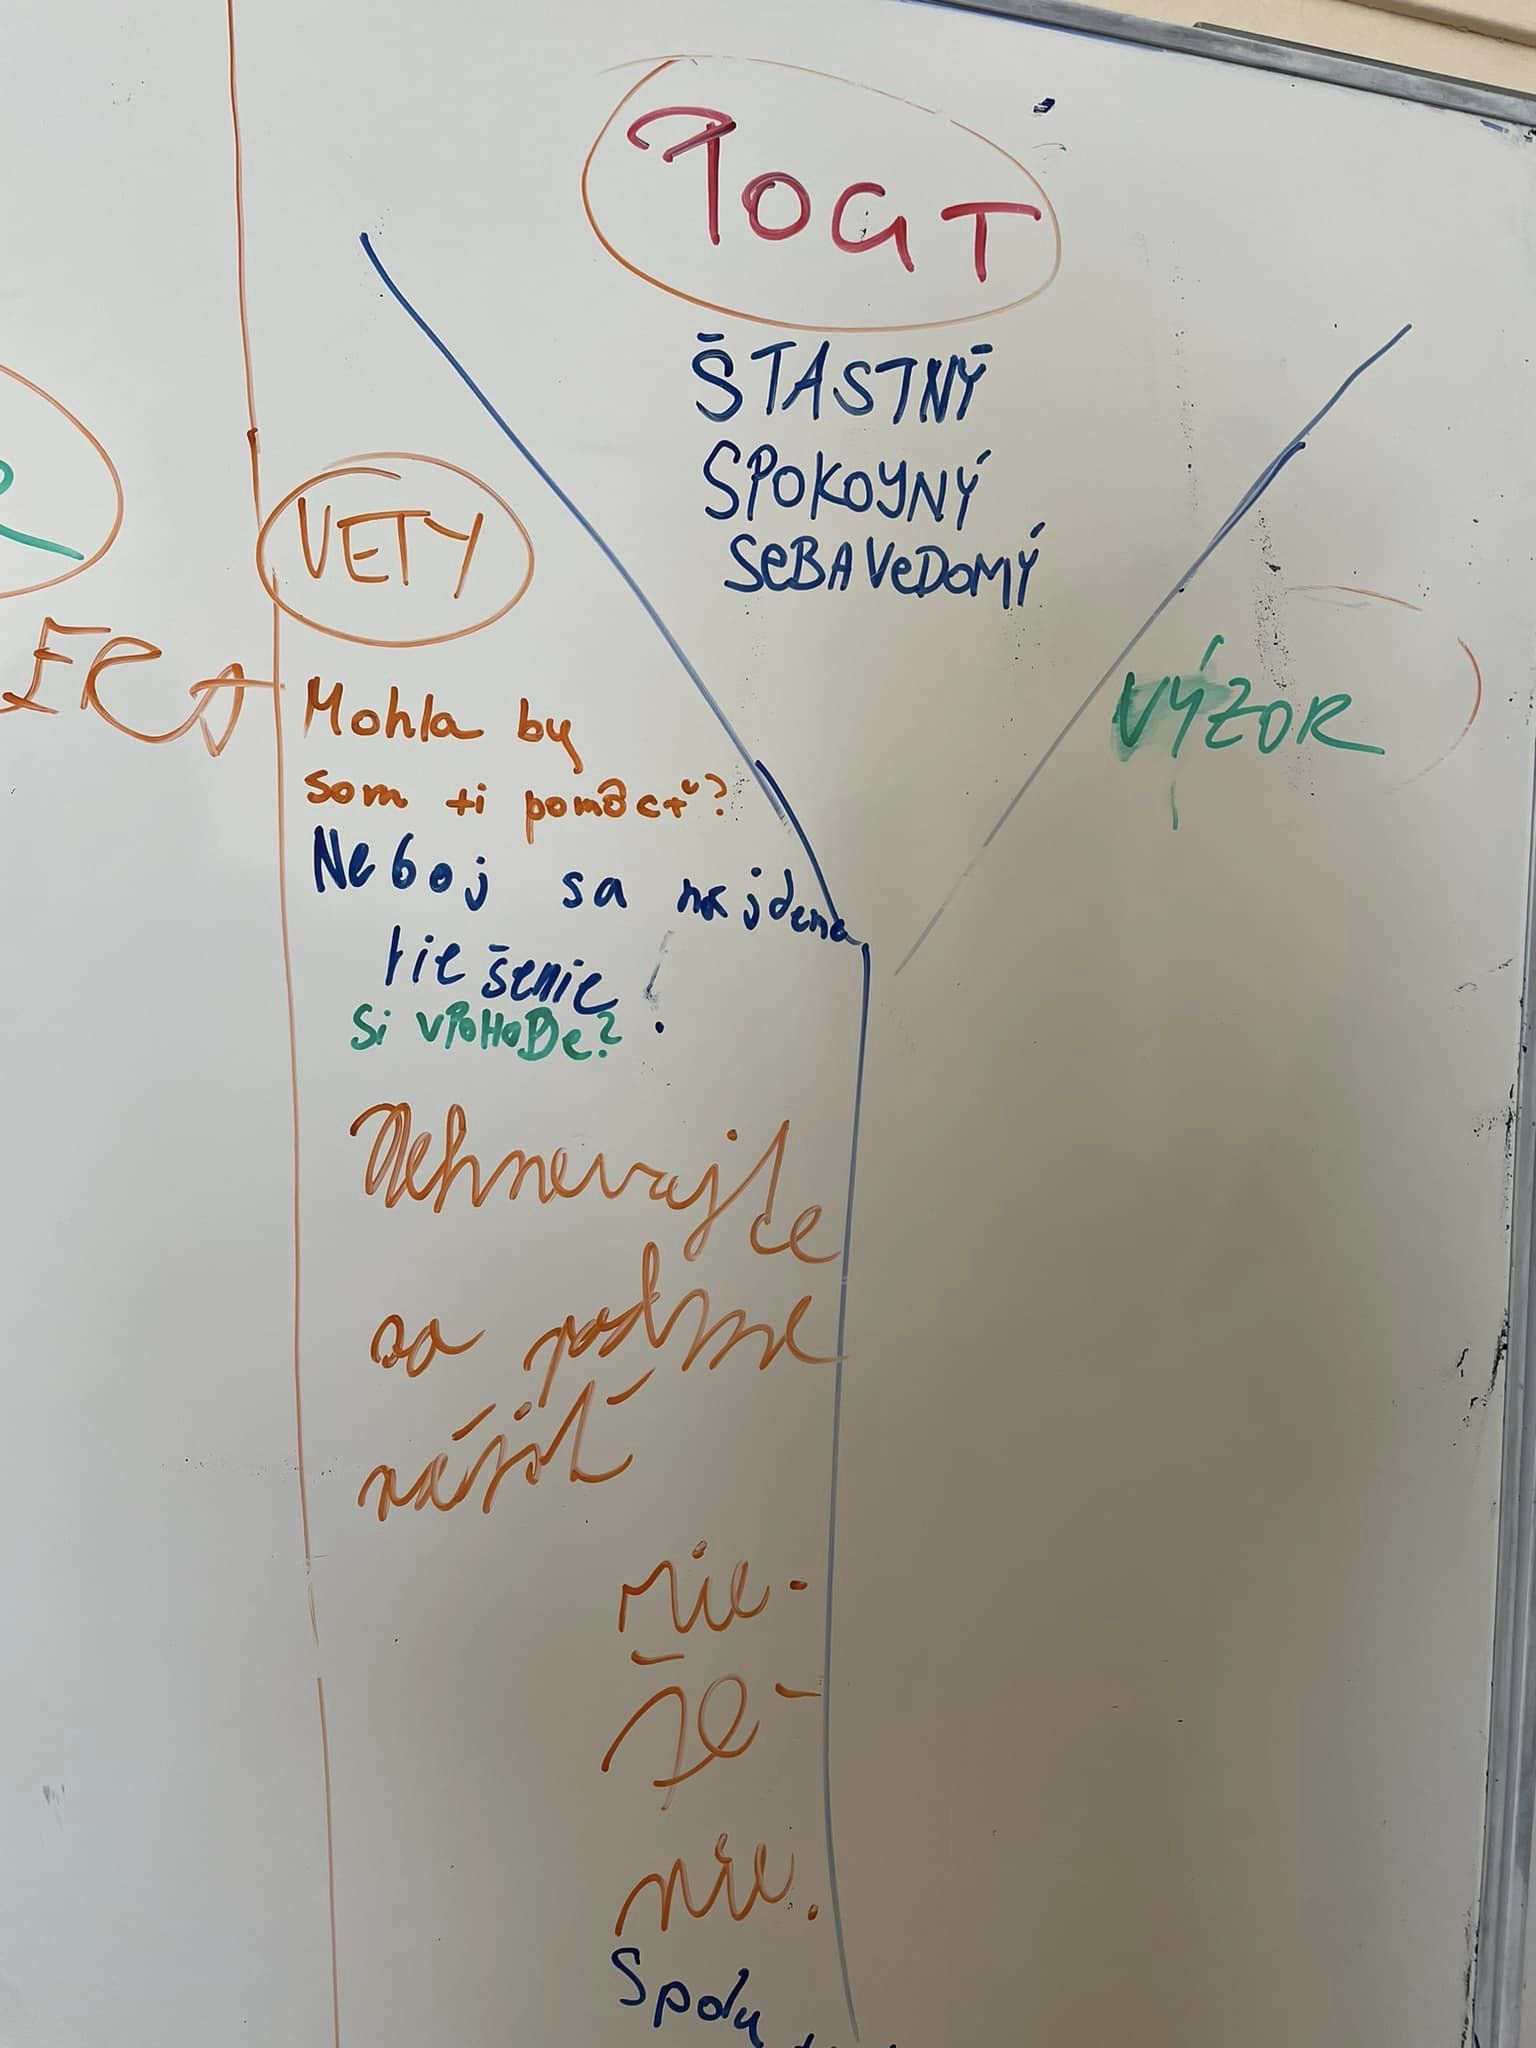 POCIT
ŠTASTNÝ
SPOKOYNÝ
SEBAVEDOMÝ
VETY
VÝZOR
Mohla by
som ti pomôcť?
Neboj sa najdeme
riešenie!
Si vPOHOBDe?
Nehnevajte
sa podme
nájsť
rie-
še-
nie.
Spolu